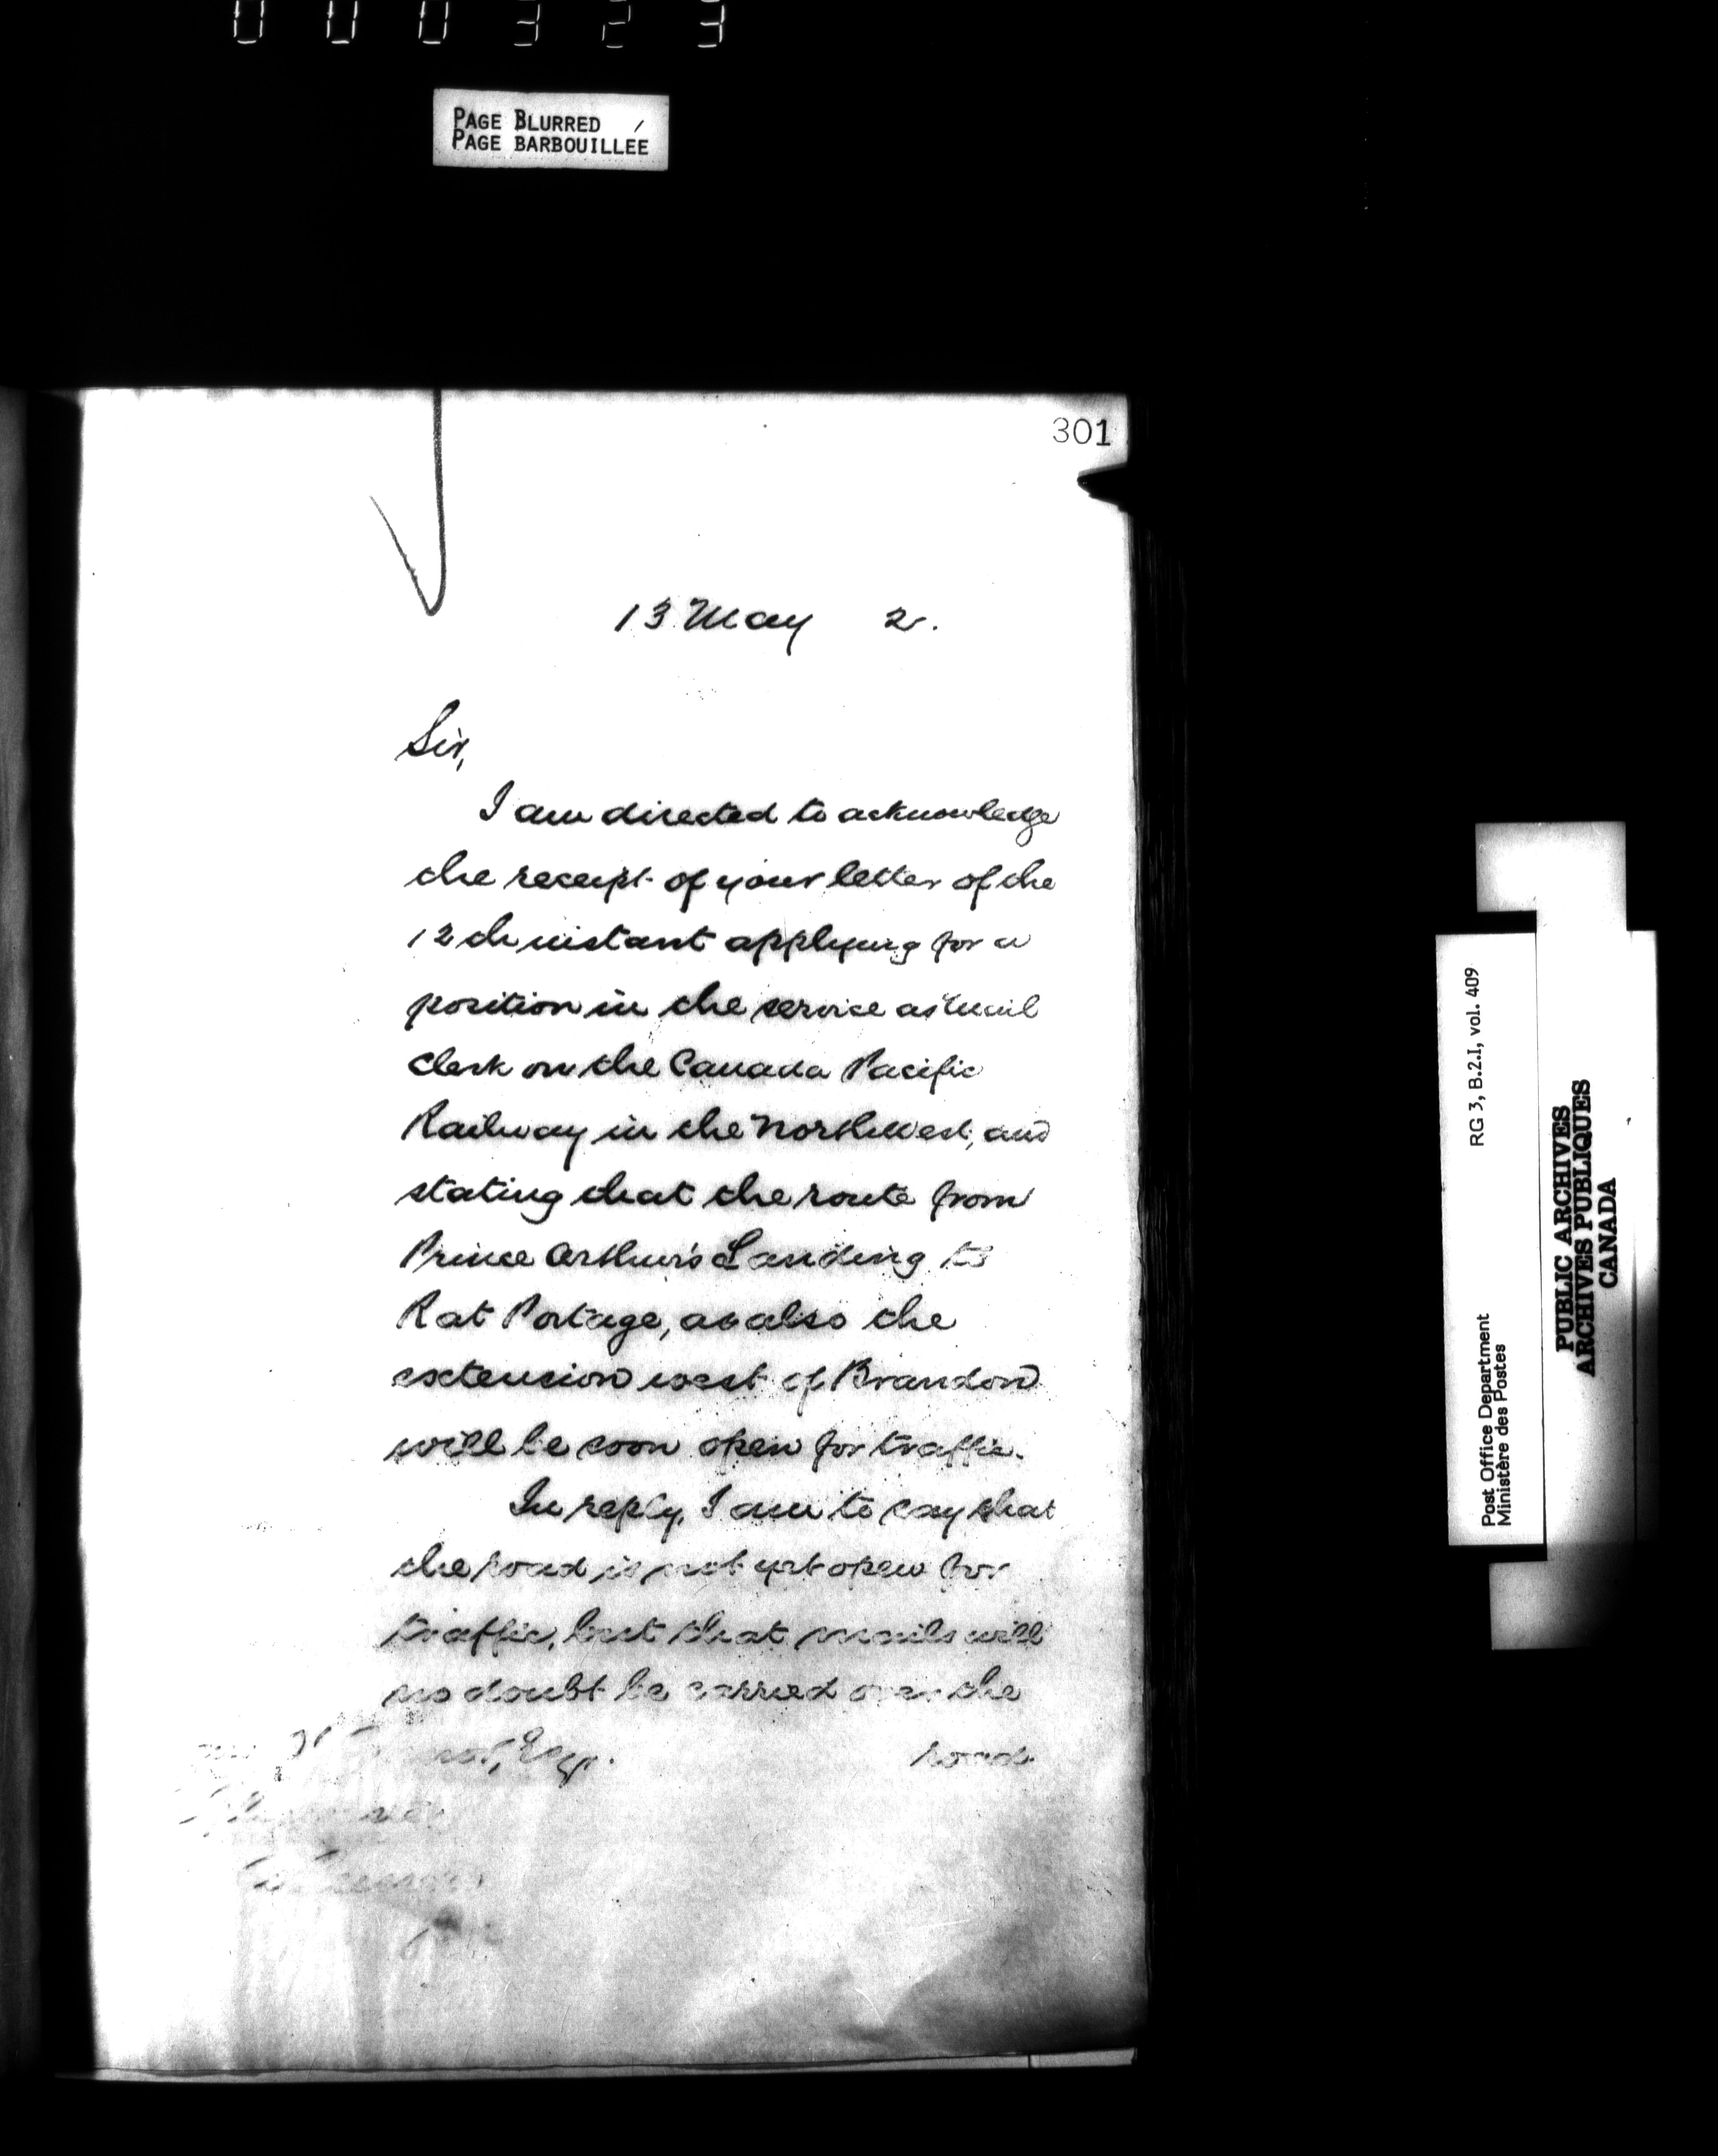 000323
PAGE BLURRED
PAGE BARBOUILLÉE
301
13 May 2.
Sir,
I am directed to acknowledge
the receipt of your letter of the
12th instant applying for a
position in the service as Mail
Clerk on the Canada Pacific
Railway in the Northwest, and
stating that the route from
Prince Arthur's Landing to
Rat Portage, as also the
extension west of Brandon
will be soon open for traffic.
In reply, I am to say that
the road is not yet open for
traffic, but that mails will
no doubt be carried over the
road
Esqr.
RG 3, B.2.I, vol. 409
Post Office Department
Ministère des Postes
PUBLIC ARCHIVES
ARCHIVES PUBLIQUES
CANADA